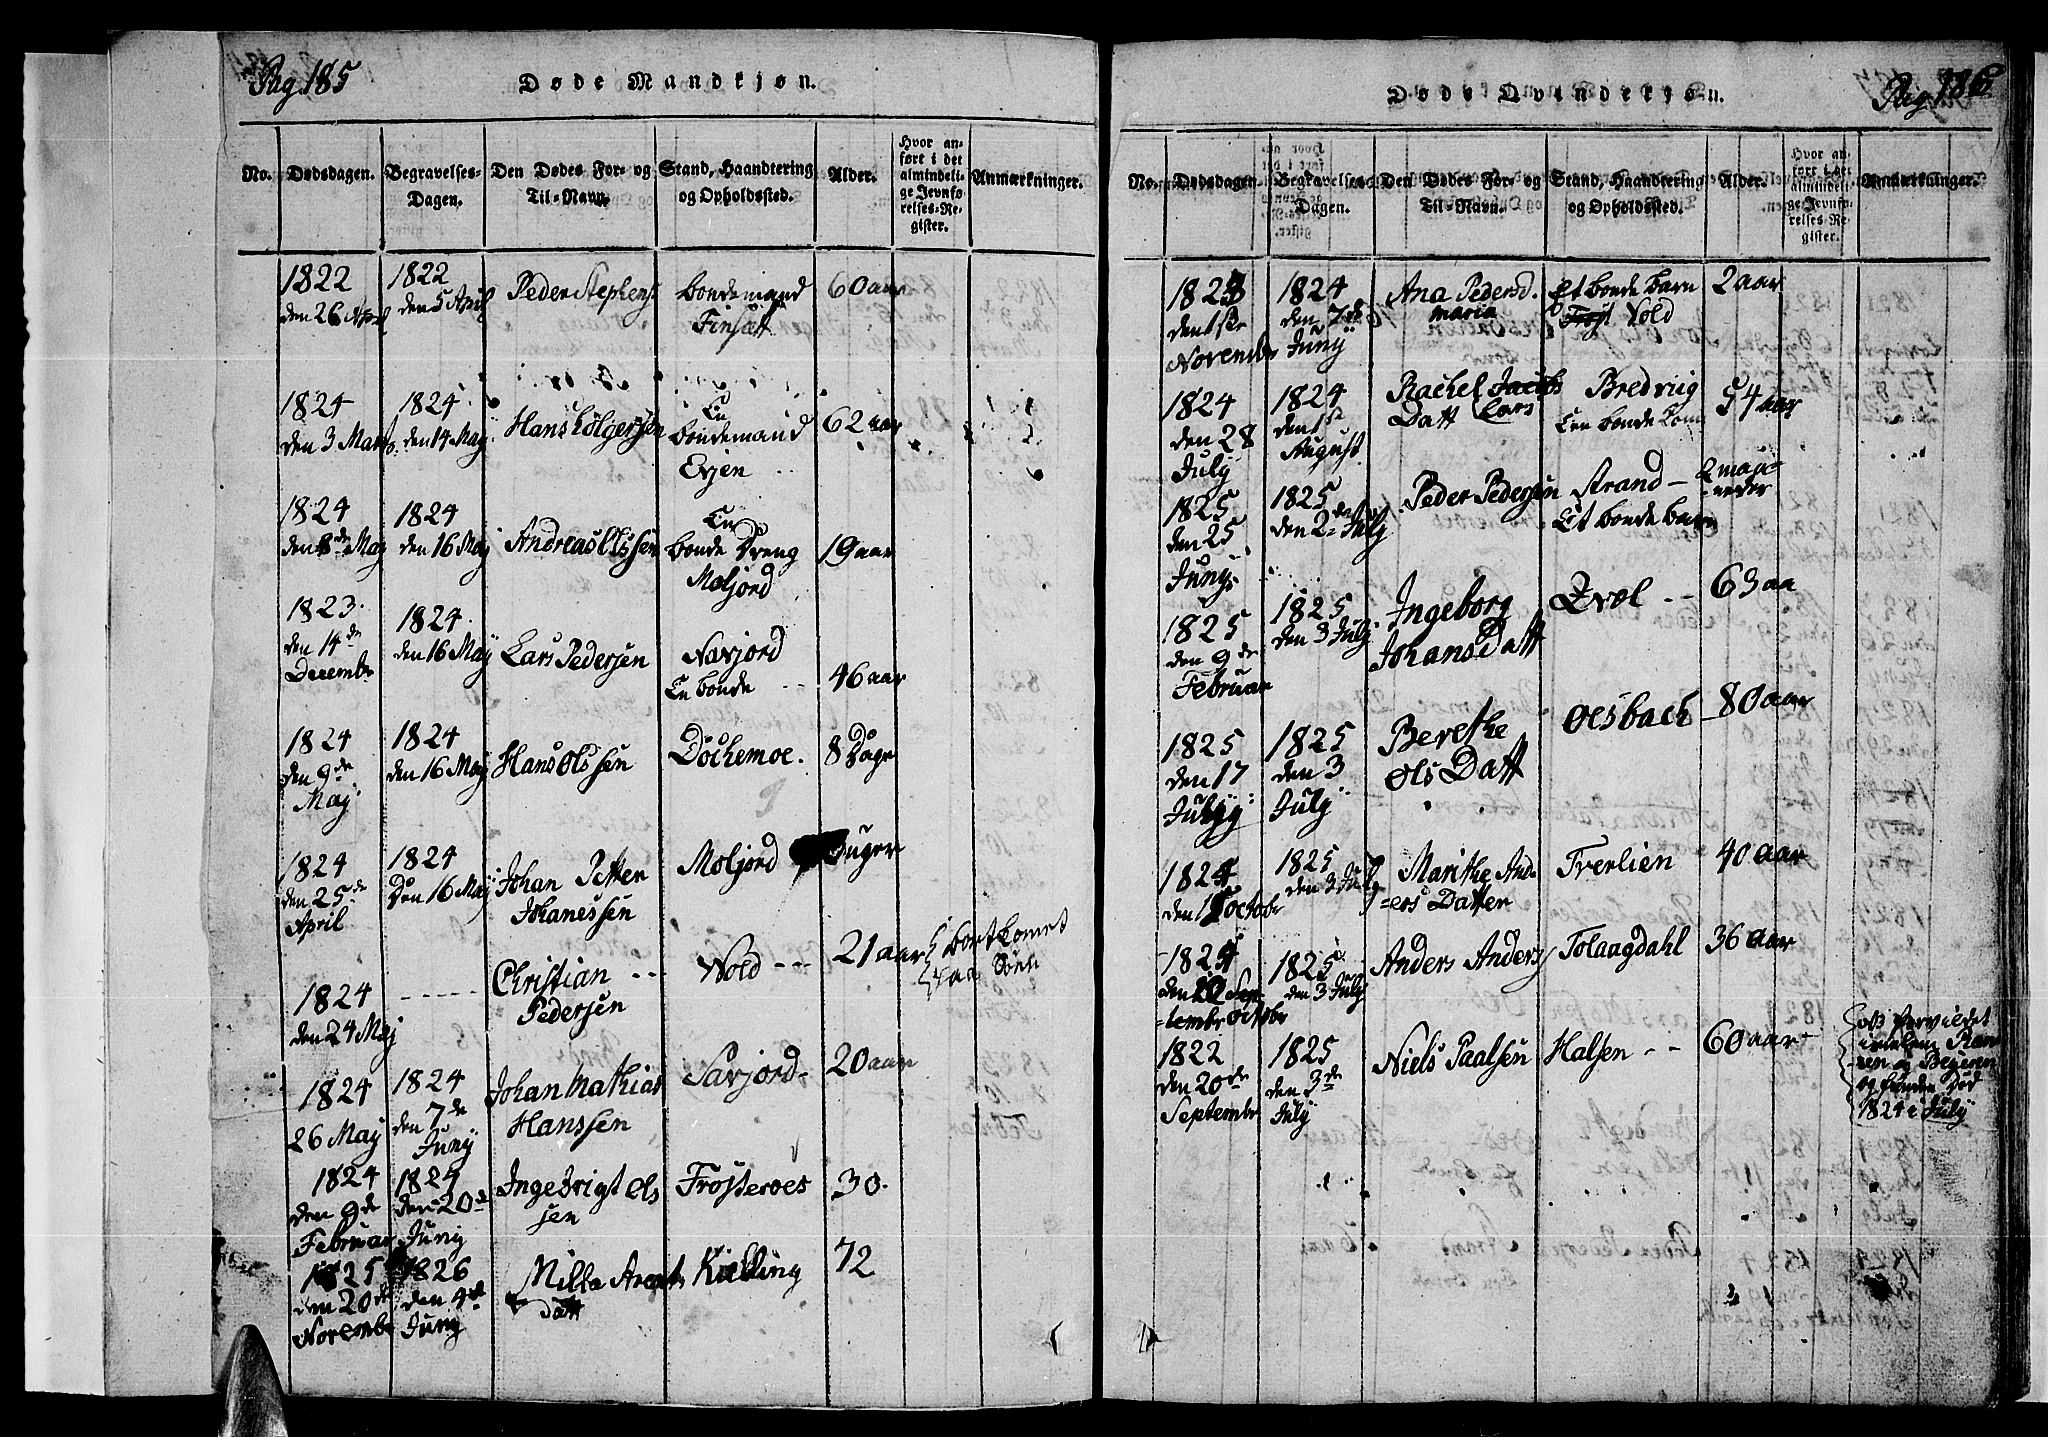 Pag 185
Døde Mandkjøn.
No.
Dødsdagen.
Begravelses-
Dagen.
Den Dødes For- og
Til-Navn.
Stand, Haandtering
og Opholdssted.
Alder.
Hvor an-
ført i det
almindeli-
ge Jevnfø-
relses-Re-
gister.
Anmærkninger.
1822
den 26 April
1822
den 5 April
Peder Stephens
bondemand
Finsætt
60 aar
1824
den 3 Marts
1824
den 14 May
Hans Holgersen
En
bondemand
Evjen
62 aar
1824
den 8de May
1824
den 16 May
Andreas Olssen
En
bonde Dreng
Moljord
19 aar
1823
den 14de
Decembr
1824
den 16 May
Lars Pedersen
Navjord
En bonde
46 aar
1824
den 9de
May
1824
den 16 May
Hans Olssen
Dochemoe.
8 Dage
1824
den 25de
April
1824
Den 16 May
Johan Petter
Johanessen
Moljord
uger
1824
den 24 May
Christian
Pedersen
Vold
21 aar
bortkomet
paa Søen
1824
26 May
1824
den 7de
Juny
Johan Mathias
Hanssen
Savjord
20 aar
1824
den 9de
Februar
1824
den 20de
Juny
Ingebrigt Ols
sen
Frøsteroes
30
1825
den 20de
Novembr
1826
den 4de
Juny
Milla Arents
Datt
Kielling
72
Pag 186
Døde Qvindekjøn.
No.
Dødsdagen
Begravelses-
Dagen.
Den Dødes For- og
Til-Navn.
Stand, Haandtering
og Opholdssted.
Alder.
Hvor an-
ført i det
almindeli-
ge Jevnfø-
relses-Re-
gister.
Anmærkninger.
1823
den 1ste
Novembr
1824
den 7de
Juny
Ana Pedersd.
maria
Et bonde barn
Vold
2 aar
1824
den 28
July
1824
den 1ste
August
Rachel Jacobs
Datt Lars
Bredviig
En bonde Kone
54 aar
1825
den 25
Juny
1825
den 2de July
Peder Pedersen
Strand
Et bonde barn
2 maa-
neder
1825
den 9de
Februar
1825
den 3 July
Ingeborg
Johans Datt
Evæl
63 aa
1825
den 17
July
1825
den 3
July
Berethe
Ols Datt
Oesbach
80 aar
1824
den 1 Octobr
1825
den 3 July
Marithe And
ers Datter
Tverlien
40 aar
1824
den Sep
tembr Octobr
1825
den 3 July
Anders Anders
Tolaagdahl
36 aar
1822
den 20de
Septembr
1825
den 3de
July
Niels Paalsen
Halsen
60 aar
forvildet
imelem Ran
en og Begeren
og funden Død
1824 i July